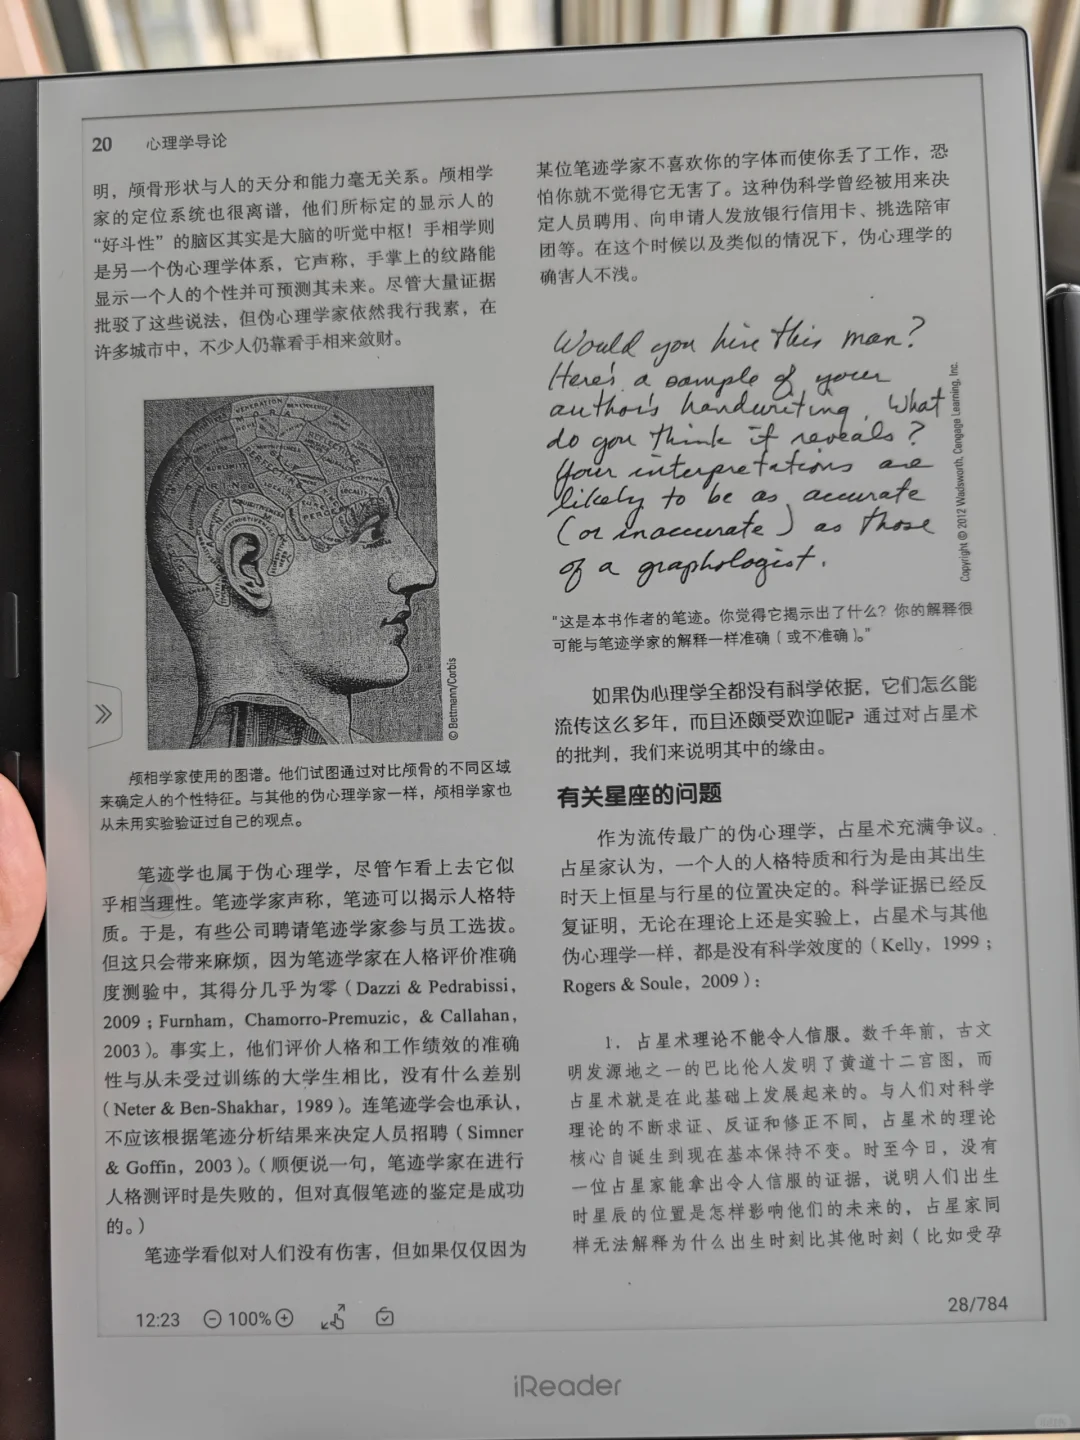 20 心理学导论
明，颅骨形状与人的天分和能力毫无关系。颅相学
家的定位系统也很离谱，他们所标定的显示人的
“好斗性”的脑区其实是大脑的听觉中枢！手相学则
是另一个伪心理学体系，它声称，手掌上的纹路能
显示一个人的个性并可预测其未来。尽管大量证据
批驳了这些说法，但伪心理学家依然我行我素，在
许多城市中，不少人仍靠看手相来敛财。
© Bettmann/Corbis
颅相学家使用的图谱。他们试图通过对比颅骨的不同区域
来确定人的个性特征。与其他的伪心理学家一样，颅相学家也
从未用实验验证过自己的观点。
笔迹学也属于伪心理学，尽管乍看上去它似
乎相当理性。笔迹学家声称，笔迹可以揭示人格特
质。于是，有些公司聘请笔迹学家参与员工选拔。
但这只会带来麻烦，因为笔迹学家在人格评价准确
度测验中，其得分几乎为零（Dazzi & Pedrabissi，
2009；Furnham，Chamorro-Premuzic，& Callahan，
2003）。事实上，他们评价人格和工作绩效的准确
性与从未受过训练的大学生相比，没有什么差别
（Neter & Ben-Shakhar，1989）。连笔迹学会也承认，
不应该根据笔迹分析结果来决定人员招聘（Simner
& Goffin，2003）。（顺便说一句，笔迹学家在进行
人格测评时是失败的，但对真假笔迹的鉴定是成功
的。）
笔迹学看似对人们没有伤害，但如果仅仅因为
某位笔迹学家不喜欢你的字体而使你丢了工作，恐
怕你就不觉得它无害了。这种伪科学曾经被用来决
定人员聘用、向申请人发放银行信用卡、挑选陪审
团等。在这个时候以及类似的情况下，伪心理学的
确害人不浅。
Would you hire this man?
Here's a sample of your
author's handwriting. What
do you think it reveals?
Your interpretations are
likely to be as accurate
(or inaccurate) as those
of a graphologist.
Copyright © 2012 Wadsworth, Cengage Learning, Inc.
“这是本书作者的笔迹。你觉得它揭示出了什么？你的解释很
可能与笔迹学家的解释一样准确（或不准确）。”
如果伪心理学全都没有科学依据，它们怎么能
流传这么多年，而且还颇受欢迎呢？通过对占星术
的批判，我们来说明其中的缘由。
有关星座的问题
作为流传最广的伪心理学，占星术充满争议。
占星家认为，一个人的人格特质和行为是由其出生
时天上恒星与行星的位置决定的。科学证据已经反
复证明，无论在理论上还是实验上，占星术与其他
伪心理学一样，都是没有科学效度的（Kelly，1999；
Rogers & Soule，2009）：
1．占星术理论不能令人信服。数千年前，古文
明发源地之一的巴比伦人发明了黄道十二宫图，而
占星术就是在此基础上发展起来的。与人们对科学
理论的不断求证、反证和修正不同，占星术的理论
核心自诞生到现在基本保持不变。时至今日，没有
一位占星家能拿出令人信服的证据，说明人们出生
时星辰的位置是怎样影响他们的未来的，占星家同
样无法解释为什么出生时刻比其他时刻（比如受孕
12:23 100% 28/784
iReader